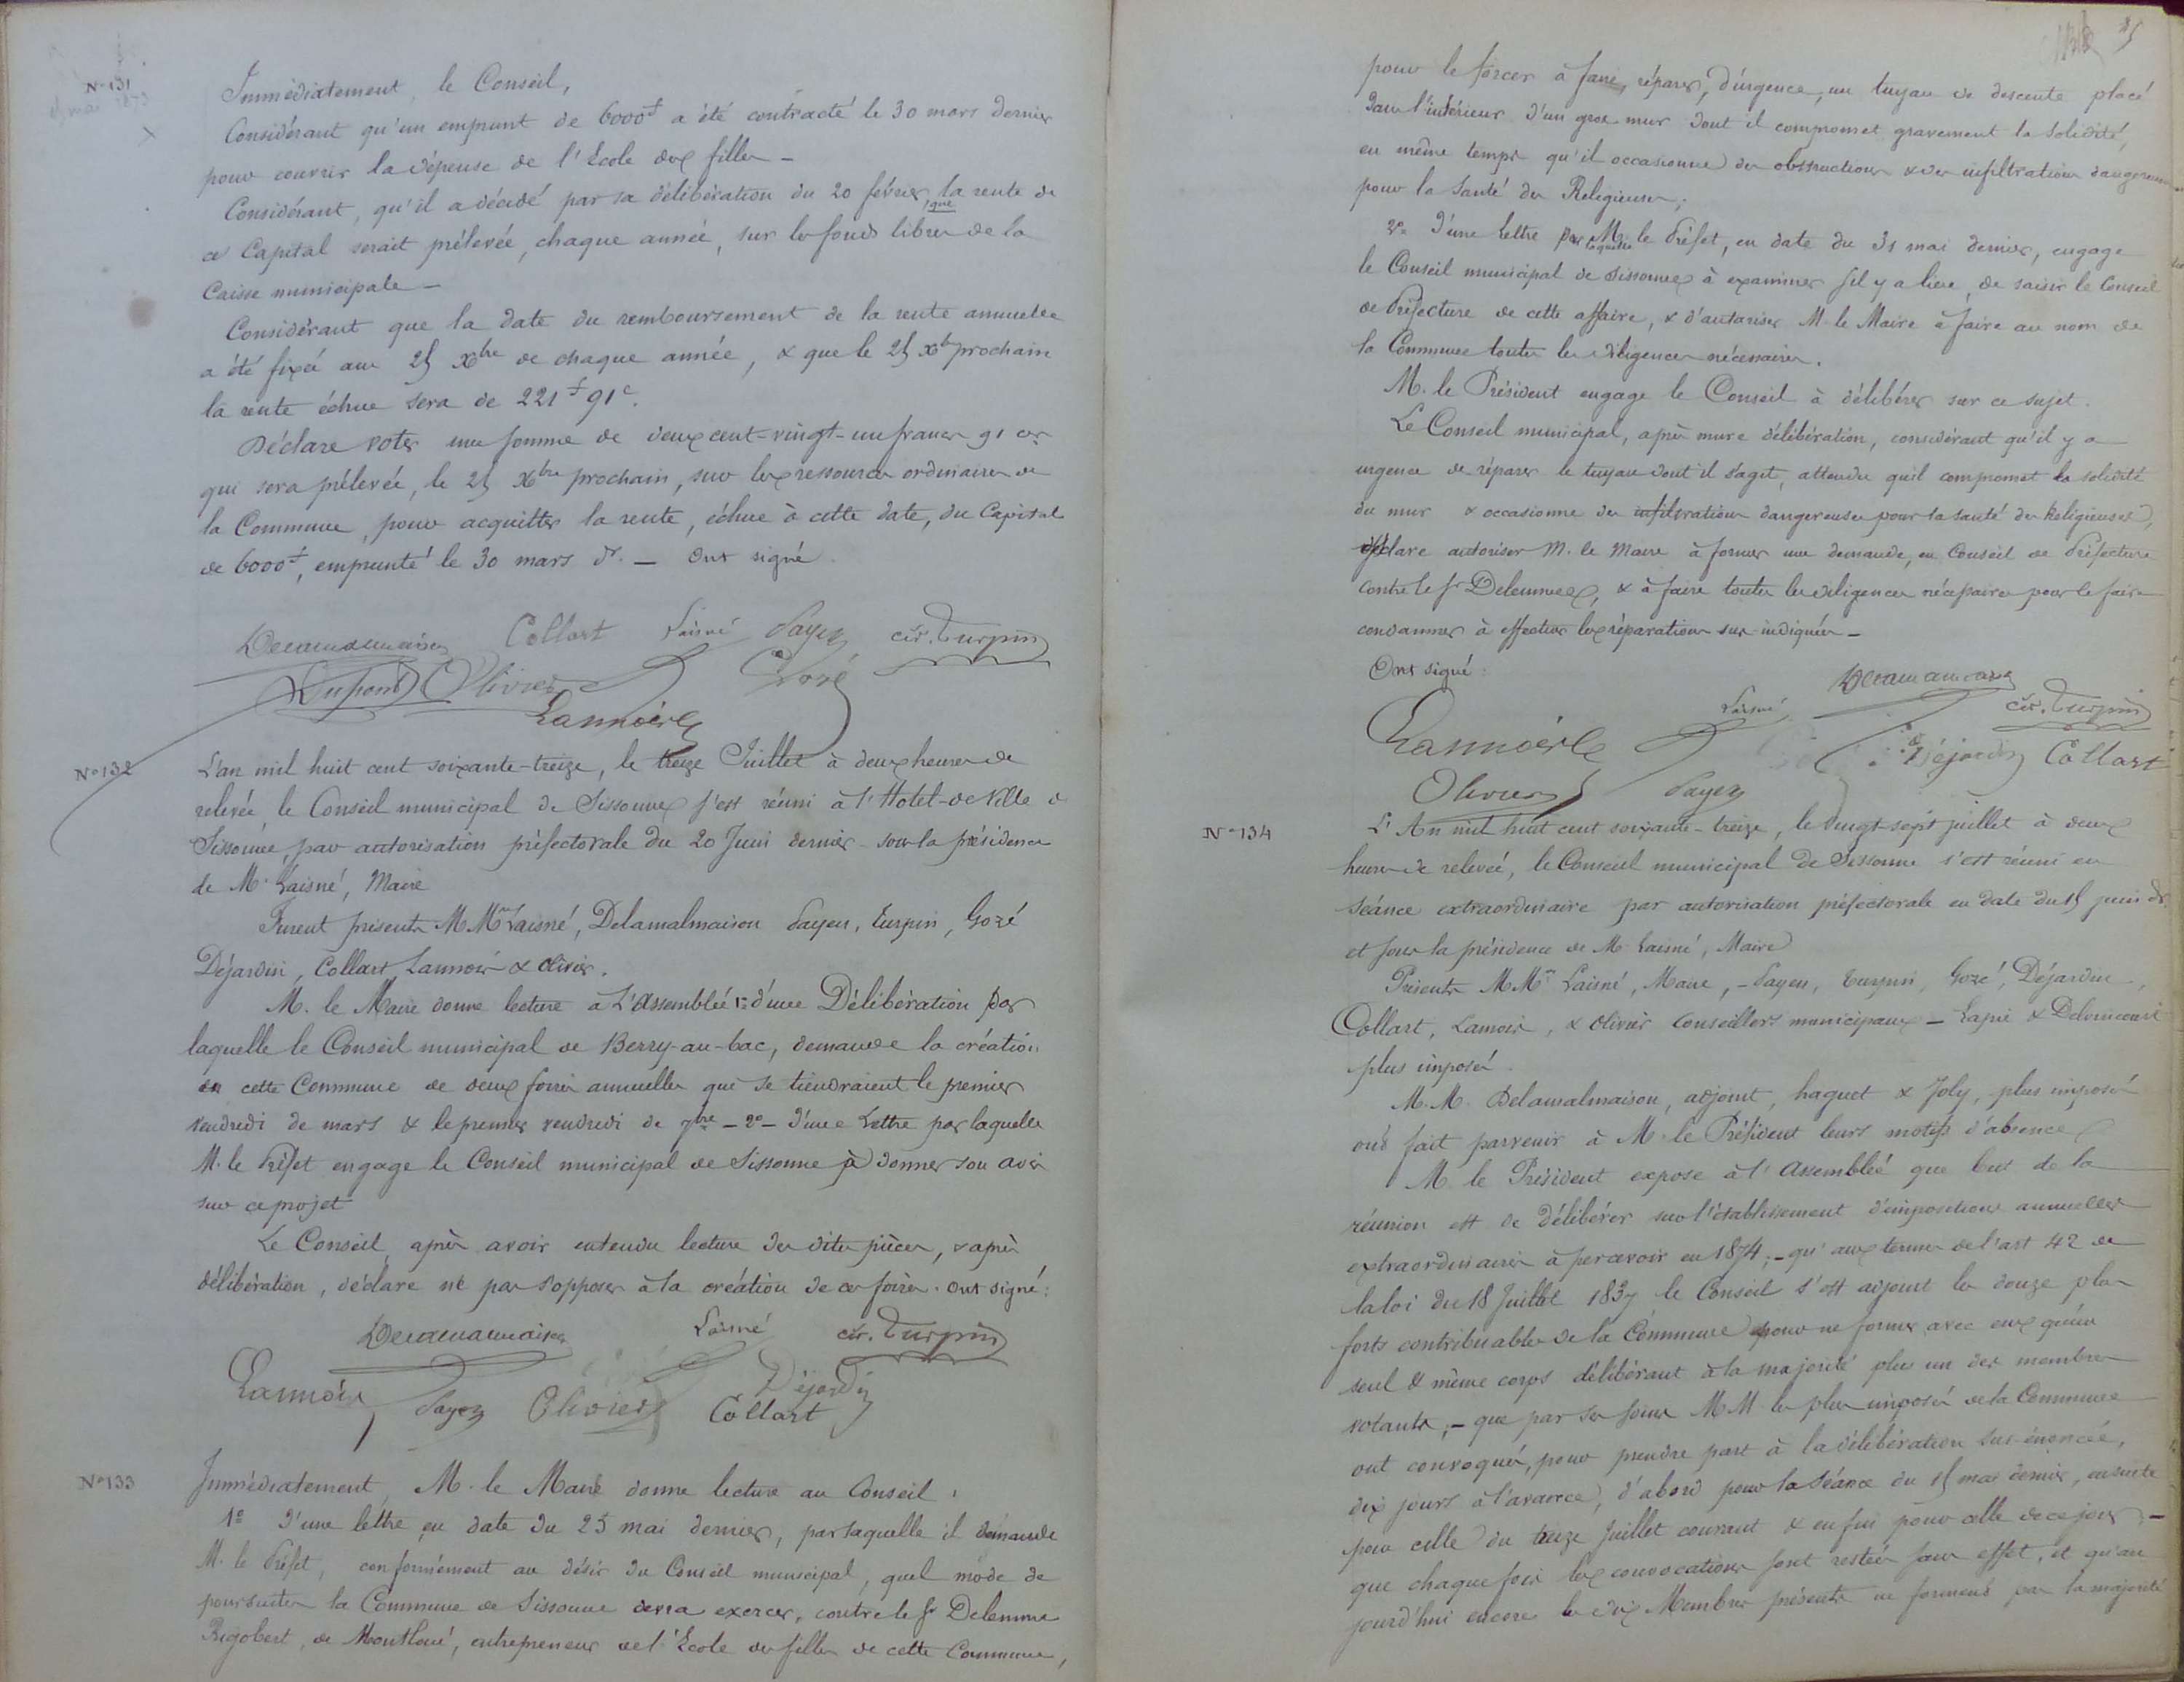 N° 131
Immédiatement, le Conseil,
Considérant qu'un emprunt de 6000f a été contracté le 30 mars dernier
pour couvrir la dépense de l'Ecole des filles —
Considérant, qu'il a décidé par sa délibération du 20 février, que la rente de
ce Capital serait prélevée, chaque année, sur les fonds libres de la
Caisse municipale —
Considérant que la date du remboursement de la rente annuelle
a été fixée au 25 Xbre de chaque année, & que le 25 Xbre prochain
la rente échue sera de 221f 91c.
Déclare voter une somme de deux cent-vingt-un francs 91 ces
qui sera prélevée, le 25 Xbre prochain, sur les ressources ordinaires de
la Commune, pour acquitter la rente, échue à cette date, du Capital
de 6000f, emprunté le 30 mars dr. — Ont signé
Delamalmaison Collart Laisné Payen cir. Turpin
Dupont Olivier Gozé
Lannoix
N° 132
L'an mil huit cent soixante-treize, le treize Juillet à deux heures de
relevée le Conseil municipal de Sissonne s'est réuni à l'Hotel-de-Ville de
Sissonne, par autorisation préfectorale du 20 Juin dernier sous la présidence
de M. Laisné, Maire
Furent présents M.Mrs Laisné, Delamalmaison Payen, Turpin, Gozé
Déjardin, Collart Lannoix & Olivier.
M. le Maire donne lecture à L'Assemblée 1° d'une Délibération par
laquelle le Conseil municipal de Berry-au-bac, demande la création
en cette Commune de deux foires annuelles qui se tiendraient le premier
vendredi de mars & le premier vendredi de 7bre — 2° — d'une Lettre par laquelle
M. le Préfet engage le Conseil municipal de Sissonne à donner son avis
sur ce projet
Le Conseil, après avoir entendu lecture des dites pièces, & après
délibération, déclare ne pas s'opposer à la création de ces foires. Ont signé :
Delamalmaison Laisné cir. Turpin
Lannoix Payen Olivier Déjardin
Collart
N° 133
Immédiatement, M. le Maire donne lecture au Conseil,
1° D'une lettre en date du 25 mai dernier, par laquelle il demande
M. le Préfet, conformément au désir du Conseil municipal, quel mode de
poursuites la Commune de Sissonne devra exercer, contre le Sr Delemme
Rigobert, de Montloué, entrepreneur de l'Ecole des filles de cette Commune,
pour le forcer à faire, réparer, d'urgence, un tuyau de descente placé
dans l'intérieur d'un gros mur dont il compromet gravement la solidité,
en même temps qu'il occasionne des obstructions & des infiltrations dangereuses
pour la Santé des Religieuses ;
2° D'une lettre par laquelle M. le Préfet, en date du 31 mai dernier, engage
le Conseil municipal de Sissonne à examiner s'il y a lieu, de saisir le Conseil
de Préfecture de cette affaire, & d'autoriser M. le Maire à faire au nom de
la Commune toutes les diligences nécessaires.
M. le Président engage le Conseil à délibérer sur ce sujet.
Le Conseil municipal, après mure délibération, considérant qu'il y a
urgence de réparer le tuyau dont il s'agit, attendu qu'il compromet la solidité
du mur & occasionne des infiltrations dangereuses pour la santé des Religieuses,
déclare autoriser M. le Maire à former une demande, en Conseil de Préfecture
contre le Sr Delemme, & à faire toutes les diligences nécessaires pour le faire
condamner à effectuer les réparations sus-indiquées —
Ont signé :
Delamalmaison
Lannoix Laisné cir. Turpin
Déjardin Collart
Olivier Payen
N° 134
L'An mil huit cent soixante-treize, le vingt-sept juillet à deux
heures de relevée, le Conseil municipal de Sissonne s'est réuni en
séance extraordinaire par autorisation préfectorale en date du 15 juin dr.
et sous la présidence de M. Laisné, Maire
Présents M.Mrs Laisné, Maire, — Payen, Turpin, Gozé, Déjardin,
Collart, Lannoix, & Olivier Conseillers municipaux — Lapie & Deloincourt
plus imposés.
M.M. Delamalmaison, adjoint, haguet & Joly, plus imposés
ont fait parvenir à M. le Président leurs motifs d'absence
M. le Président expose à l'Assemblée que but de la
réunion est de délibérer sur l'établissement d'impositions annuelles
extraordinaires à percevoir en 1874, — qu'aux termes de l'art 42 de
la loi du 18 Juillet 1837 le Conseil s'est adjoint les douze plus
forts contribuables de la Commune pour ne former avec eux qu'un
seul & même corps délibérant à la majorité plus un des membres
votants, — que par ses soins M.M. les plus imposés de la Commune
ont convoqués, pour prendre part à la délibération sus-énoncée,
dix jours à l'avance, d'abord pour la Séance du 15 mai dernier, ensuite
pour celle du treize Juillet courant & enfin pour celle de ce jour, —
que chaque fois les convocations sont restées sans effet, et qu'au
jourd'hui encore les dix Membres présents ne forment pas la majorité